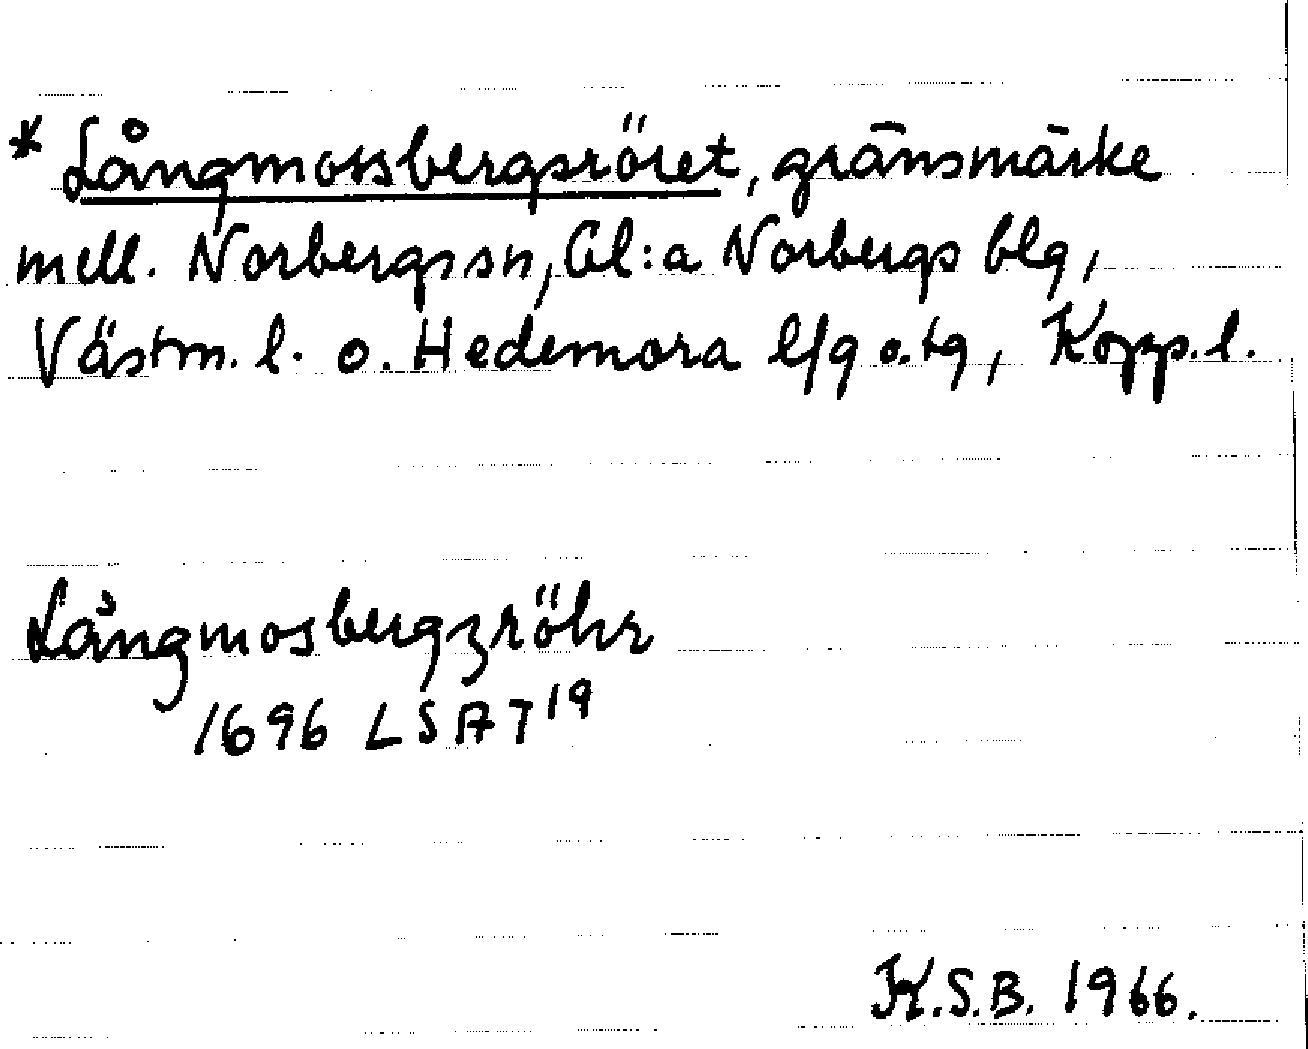 * Långmossbergsröret, gränsmärke
mell. Norbergssn, Gl:a Norbergs blg,
Västm. l. o. Hedemora l/g o. tg, Kopp. l.
Långmosbergzröhr
1696 LSA T¹⁹
K.S.B. 1966.